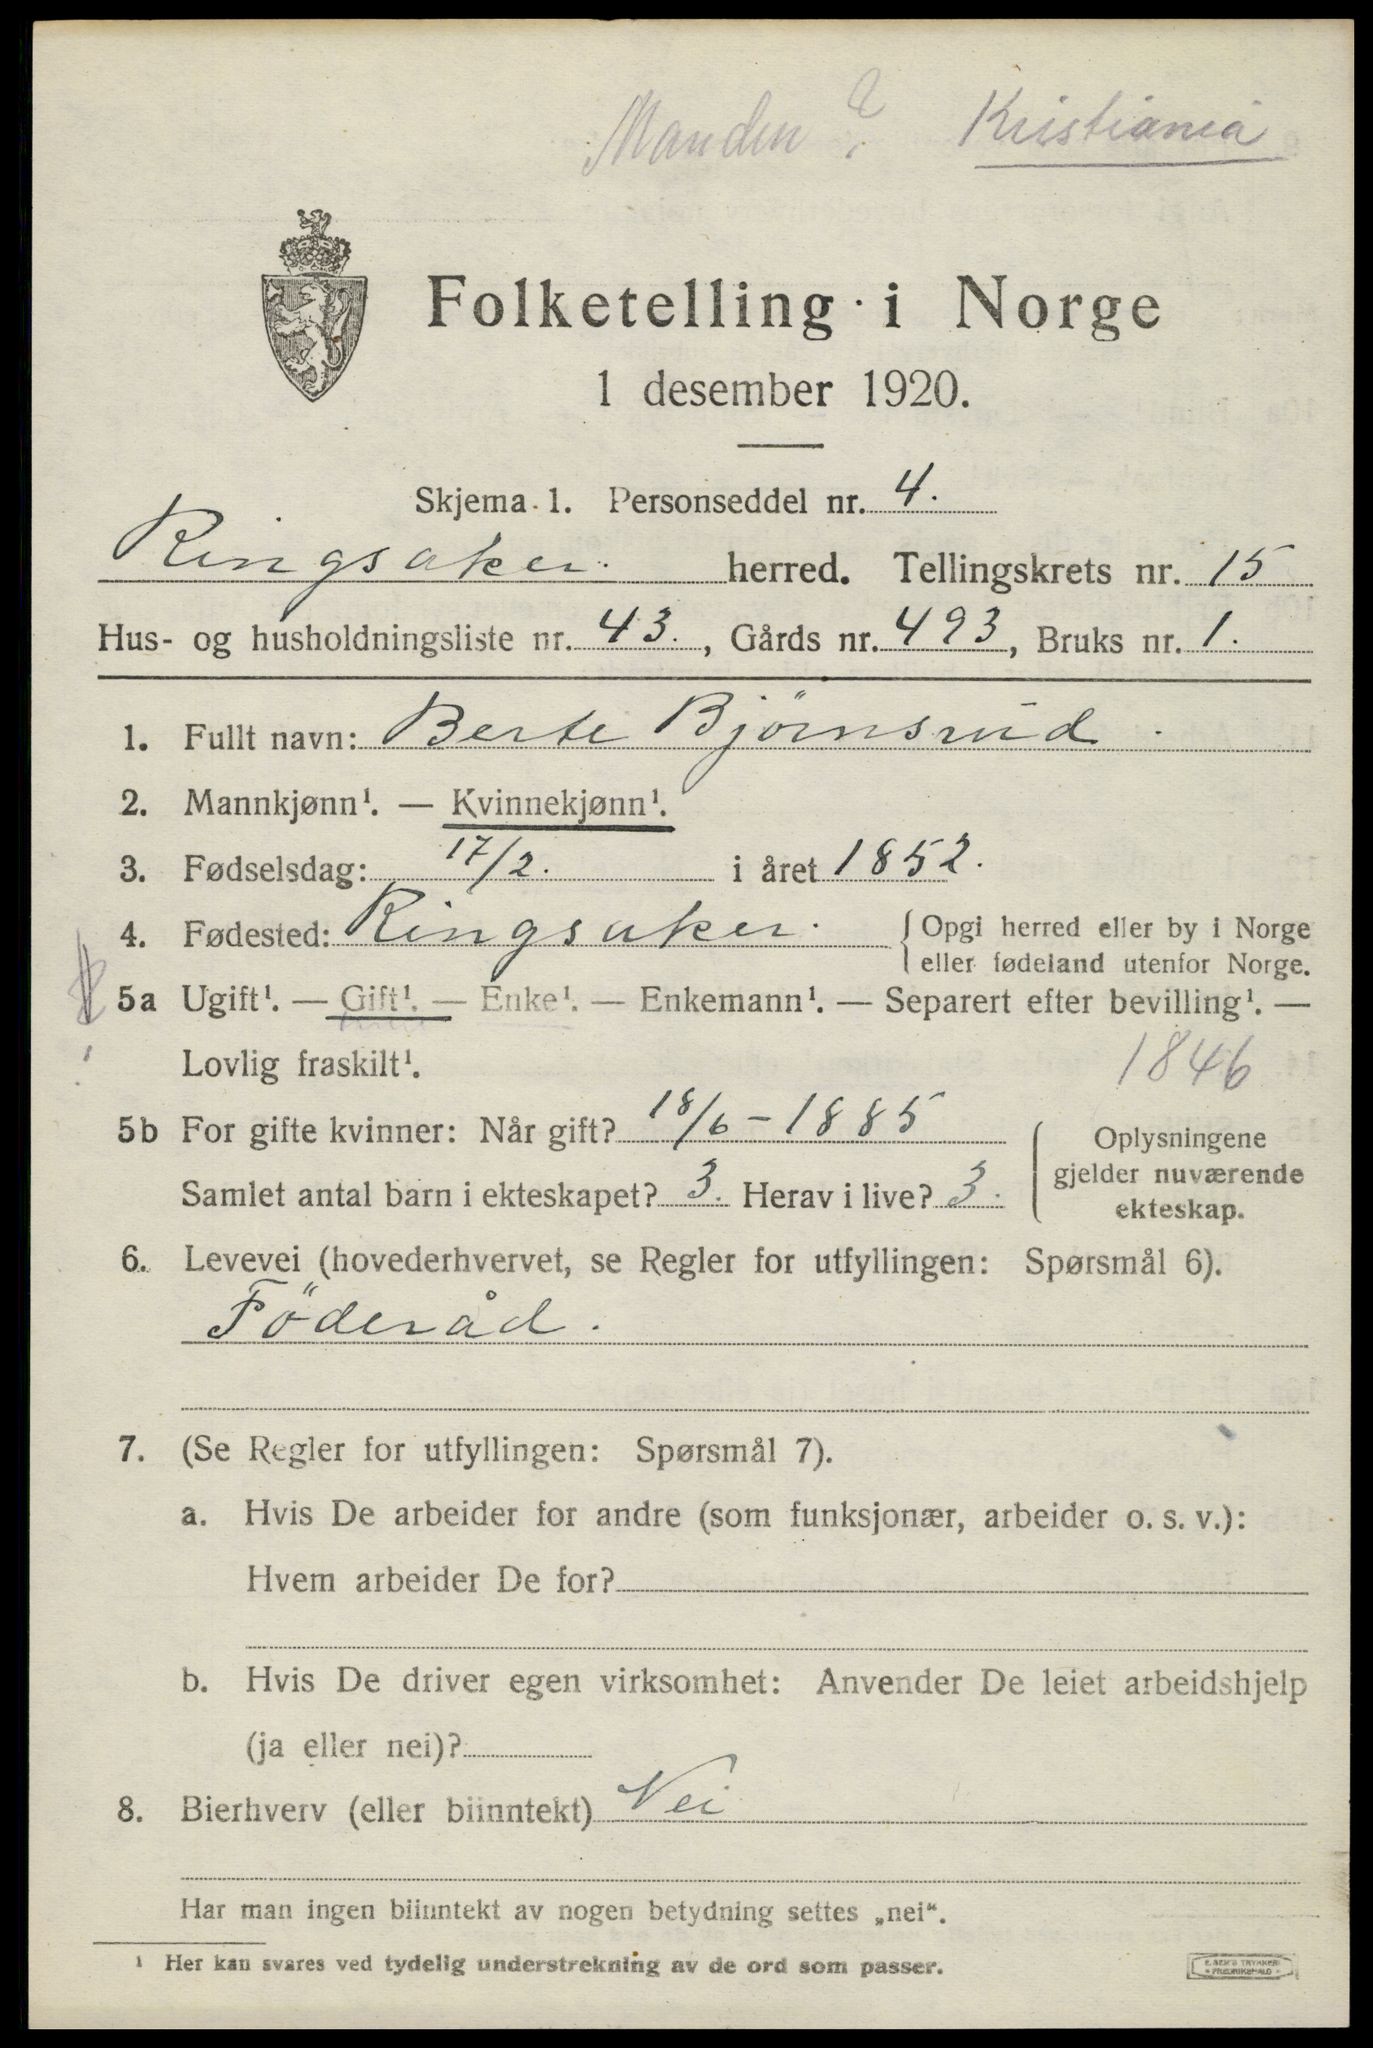 Manden ? Kristiania
Folketelling i Norge
1 desember 1920.
Skjema 1. Personseddel nr. 4.
Ringsaker. herred. Tellingskrets nr. 15
Hus- og husholdningsliste nr. 43., Gårds nr. 493, Bruks nr. 1.
1. Fullt navn: Berte Björnsrud.
2. Mannkjønn¹. — Kvinnekjønn¹.
3. Fødselsdag: 17/2. i året 1852.
4. Fødested: Ringsaker. { Opgi herred eller by i Norge
eller fødeland utenfor Norge.
5a Ugift¹. — Gift¹. — Enke¹. — Enkemann¹. — Separert efter bevilling¹. —
Lovlig fraskilt¹. 1846
5b For gifte kvinner: Når gift? 18/6 - 1885
Samlet antal barn i ekteskapet? 3. Herav i live? 3.
{ Oplysningene
gjelder nuværende
ekteskap.
6. Levevei (hovederhvervet, se Regler for utfyllingen: Spørsmål 6).
Föderåd.
7. (Se Regler for utfyllingen: Spørsmål 7).
a. Hvis De arbeider for andre (som funksjonær, arbeider o. s. v.):
Hvem arbeider De for?
b. Hvis De driver egen virksomhet: Anvender De leiet arbeidshjelp
(ja eller nei)?
8. Bierhverv (eller biinntekt) Nei
Har man ingen biinntekt av nogen betydning settes „nei“.
¹ Her kan svares ved tydelig understrekning av de ord som passer.
E. SEM'S TRYKKERI
FREDRIKSHALD